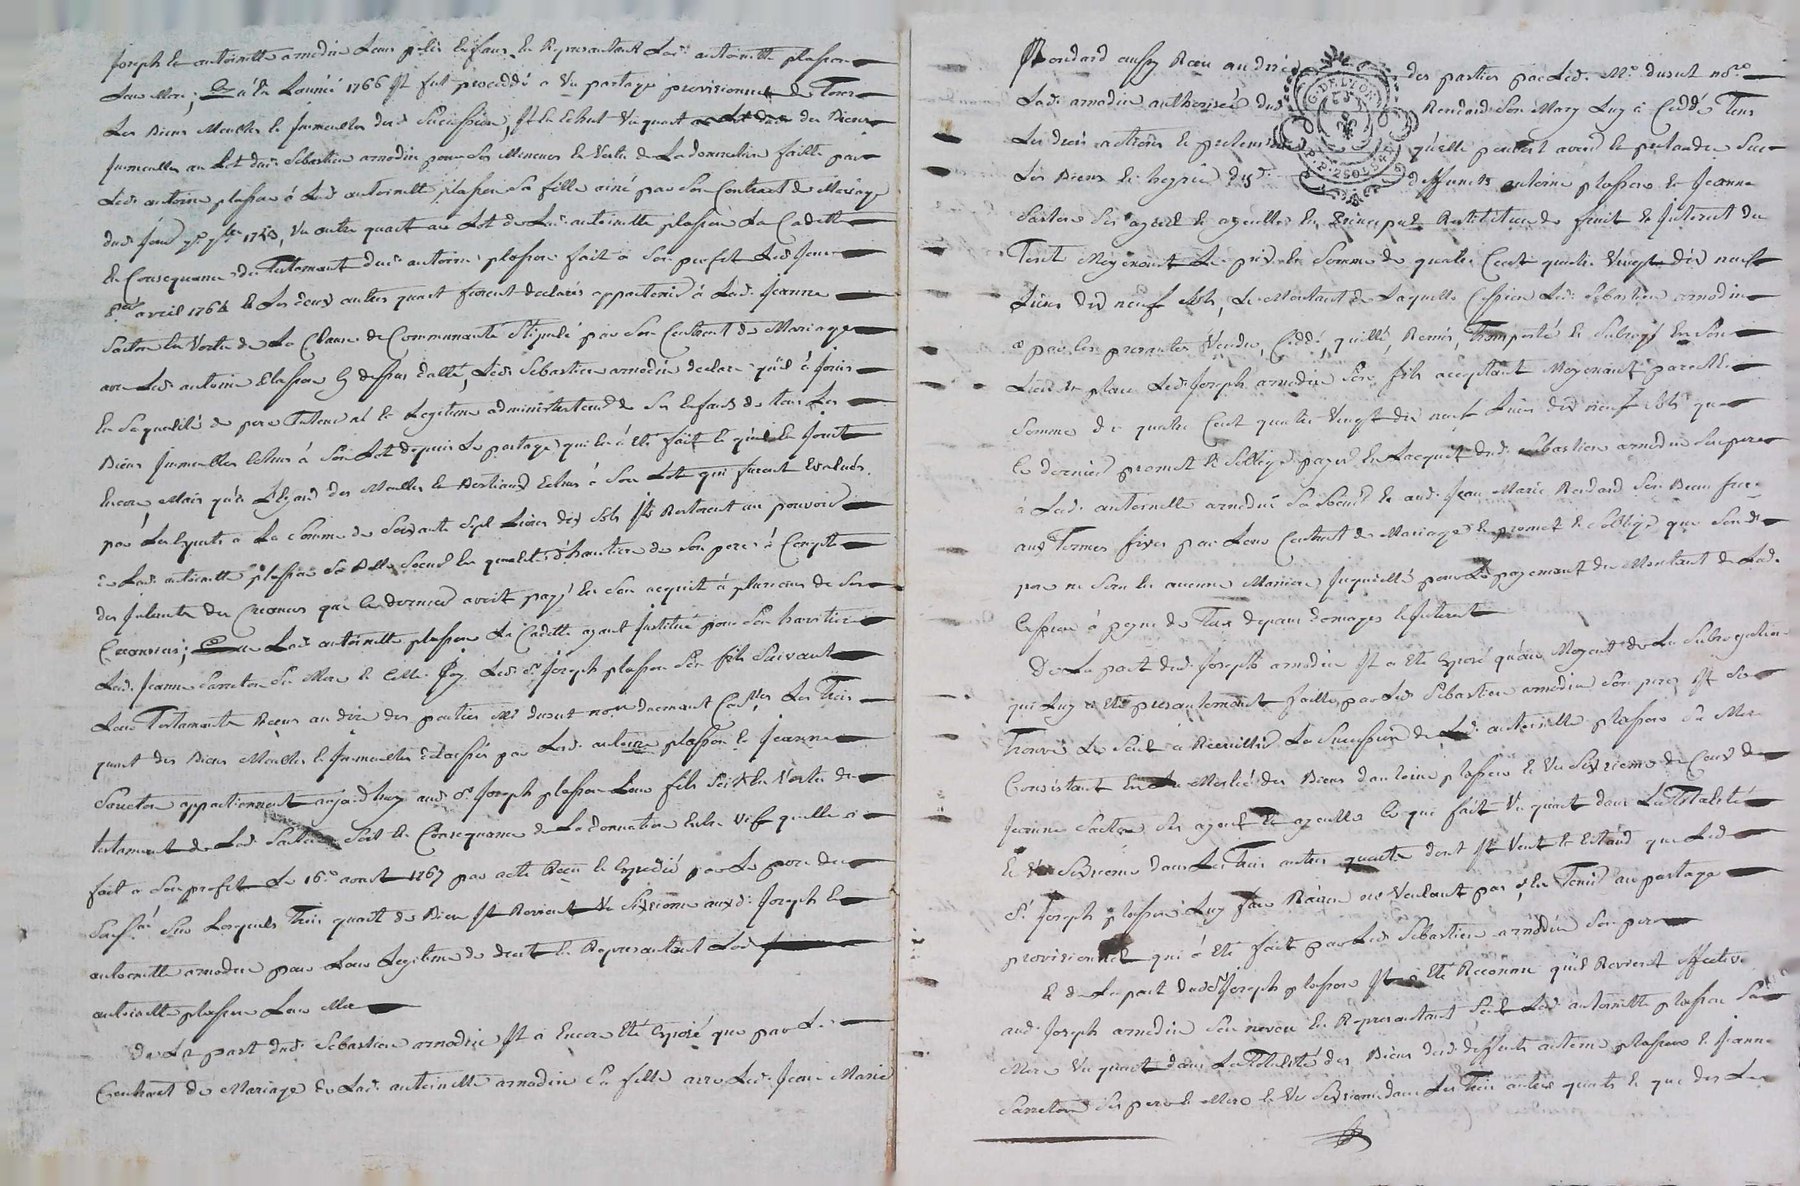 Joseph et antoinette amodru Leurs petis Enfans, En Representant Lad. antoinette plasson
Leur Mere; à En L'année 1766 Il fut proceddé a Un partage provisionnel de Tous
Les Biens Meubles et Immeubles desd. Successions, Il En Echut Un quart des Biens
Immeubles au Lot dud. Sebastien amodru pour Ses Mineurs En Vertu de La donnation faitte par
Led. antoine plasson à Lad. antoinette plasson Sa fille ainé par Son Contract de Mariage
dud. Jour 7bre 1750, Un autre quart au Lot de Lad. antoinette plasson La Cadette
En Consequence du Testament dud. antoine plasson fait à Son profit Led. Jour
avril 1764 et Les deux autres quart furent declarés appartenir à Lad. Jeanne
Sarton En Vertu de La Clause de Communauté Stipulé par Son Contract de Mariage
avec Led. antoine Plasson Cy dessus datté, Led. Sebastien amodru declare qu'il à Joüis
En Sa qualité de pere Tuteur né et Legitime administrateur de Ses Enfans de tous Les
Biens Immeubles Echus à Son Lot depuis Le partage qui En à Eté fait et qu'il En Jouit
Encore, Mais qu'a L'Egard des Meubles et Bestiaux Echus à Son Lot qui furent Evalués
par Les Experts à La Somme de Soixante Sept Livres dix Sols Ils Resterent au pouvoir
de Lad. antoinette plasson Sa Belle Soeur En qualité d'heritiere de Son pere à Compte
des Interets des Creances que Ce dernier avoit payé En Son acquit à plusieurs de Ses
Creanciers; Lad. antoinette plasson La Cadette ayant Institué pour Son heritiere
Lad. Jeanne Sarreton Sa Mere et Elle Led. Sr. Joseph plasson Son fils Suivant
Leurs Testaments Reçus au dire des parties Me. dusut nore. duement Les Trois
quart des Biens Meubles et Immeubles delaissés par Led. antoine plasson et Jeanne
Sarreton appartiennent aujourd'huy aud. Sr. Joseph plasson Leur fils Soit En Vertu du
testament de Lad. Sarton Soit En Consequance de La donnation Entre Vifs qu'elle à
fait à Son profit Le 16e. aoust 1767 par acte Reçu et Expedié par Le pere du
Soussné. Sur Lesquels Trois quart de Biens Il Revient Un Sixieme auxd. Joseph et
antoinette amodru pour Leur Legitime de droit En Representant Lad.
antoinette plasson Leur Mere
De La part dud. Sebastien amodru Il à Encore Eté Exposé que par Le
Contract de Mariage de Lad. antoinette amodru Sa fille avec Led. Jean Marie
Rondard aussy Recu au dire des parties par Led. Me. dusut nore.
Lad. amodru authorisée dud. Rondard Son Mary Luy à Ceddé Tous
Les droits actions et pretentions qu'elle pouvoit avoir et pretendre Sur
Les Biens et hoyrie desd. deffuncts antoine plasson et Jeanne
Sarton Ses ayeul et ayeulle En Principal Restitution de fruit et Interest du
Tout Moyenant Le prix et Somme de quatre Cent quatre Vingt dix neuf
Livres dix neuf Sols, Le Montant de Laquelle Cession Led. Sebastien amodru
a par Ces presentes Vendu, Ceddé, quitté, Remis, Transporté et Subrogé En Son
Lieu et place Led. Joseph amodru Son fils acceptant Moyenant pareille
Somme de quatre Cent quatre Vingt dix neuf Livres dix neuf Sols que
Ce dernier promet et S'oblige payer En L'acquit dud. Sebastien amodru Son pere
à Lad. antoinette amodru Sa Soeur et aud. Jean Marie Rondard Son Beau frere
aux Termes fixés par Leur Contract de Mariage et promet et S'oblige que Sond.
pere ne Sera En aucune Maniere Inquietté pour Le payement du Montant de Lad.
Cession à peyne de Tous depens domages et Interest
De La part dud. Joseph amodru Il a Eté Exposé qu'au Moyent de La Subrogation
qui Luy a Eté presentement faitte par Led. Sebastien amodru Son pere Il Se
Trouve Le Seul a Recueillir La Succession de Lad. antoinette plasson Sa Mere
Consistant En La Moitié des Biens d'antoine plasson et Un Sixieme de Ceux de
Jeanne Sarton Ses ayeul et ayeulle Ce qui fait Un quart dans La Totalité
et Un Sixieme dans Les Trois autres quarts dont Il Veut et Entend que Led.
Sr. Joseph plasson Luy fasse Raison ne Voulant pas S'en Tenir au partage
provisionnel qui à Eté fait par Led. Sebastien amodru Son pere
et de La part dud. Sr. Joseph plasson Il a Eté Reconnu qu'il Revient Effectivt.
aud. Joseph amodru Son neveu En Representant Lad. antoinette plasson Sa
Mere Un quart dans La Totalité des Biens desd. deffunts antoine plasson et Jeanne
Sarreton Ses pere et Mere et Un Sixieme dans Les Trois autres quarts et que des Les
G. DE LYON
P.P. 2 SOLS